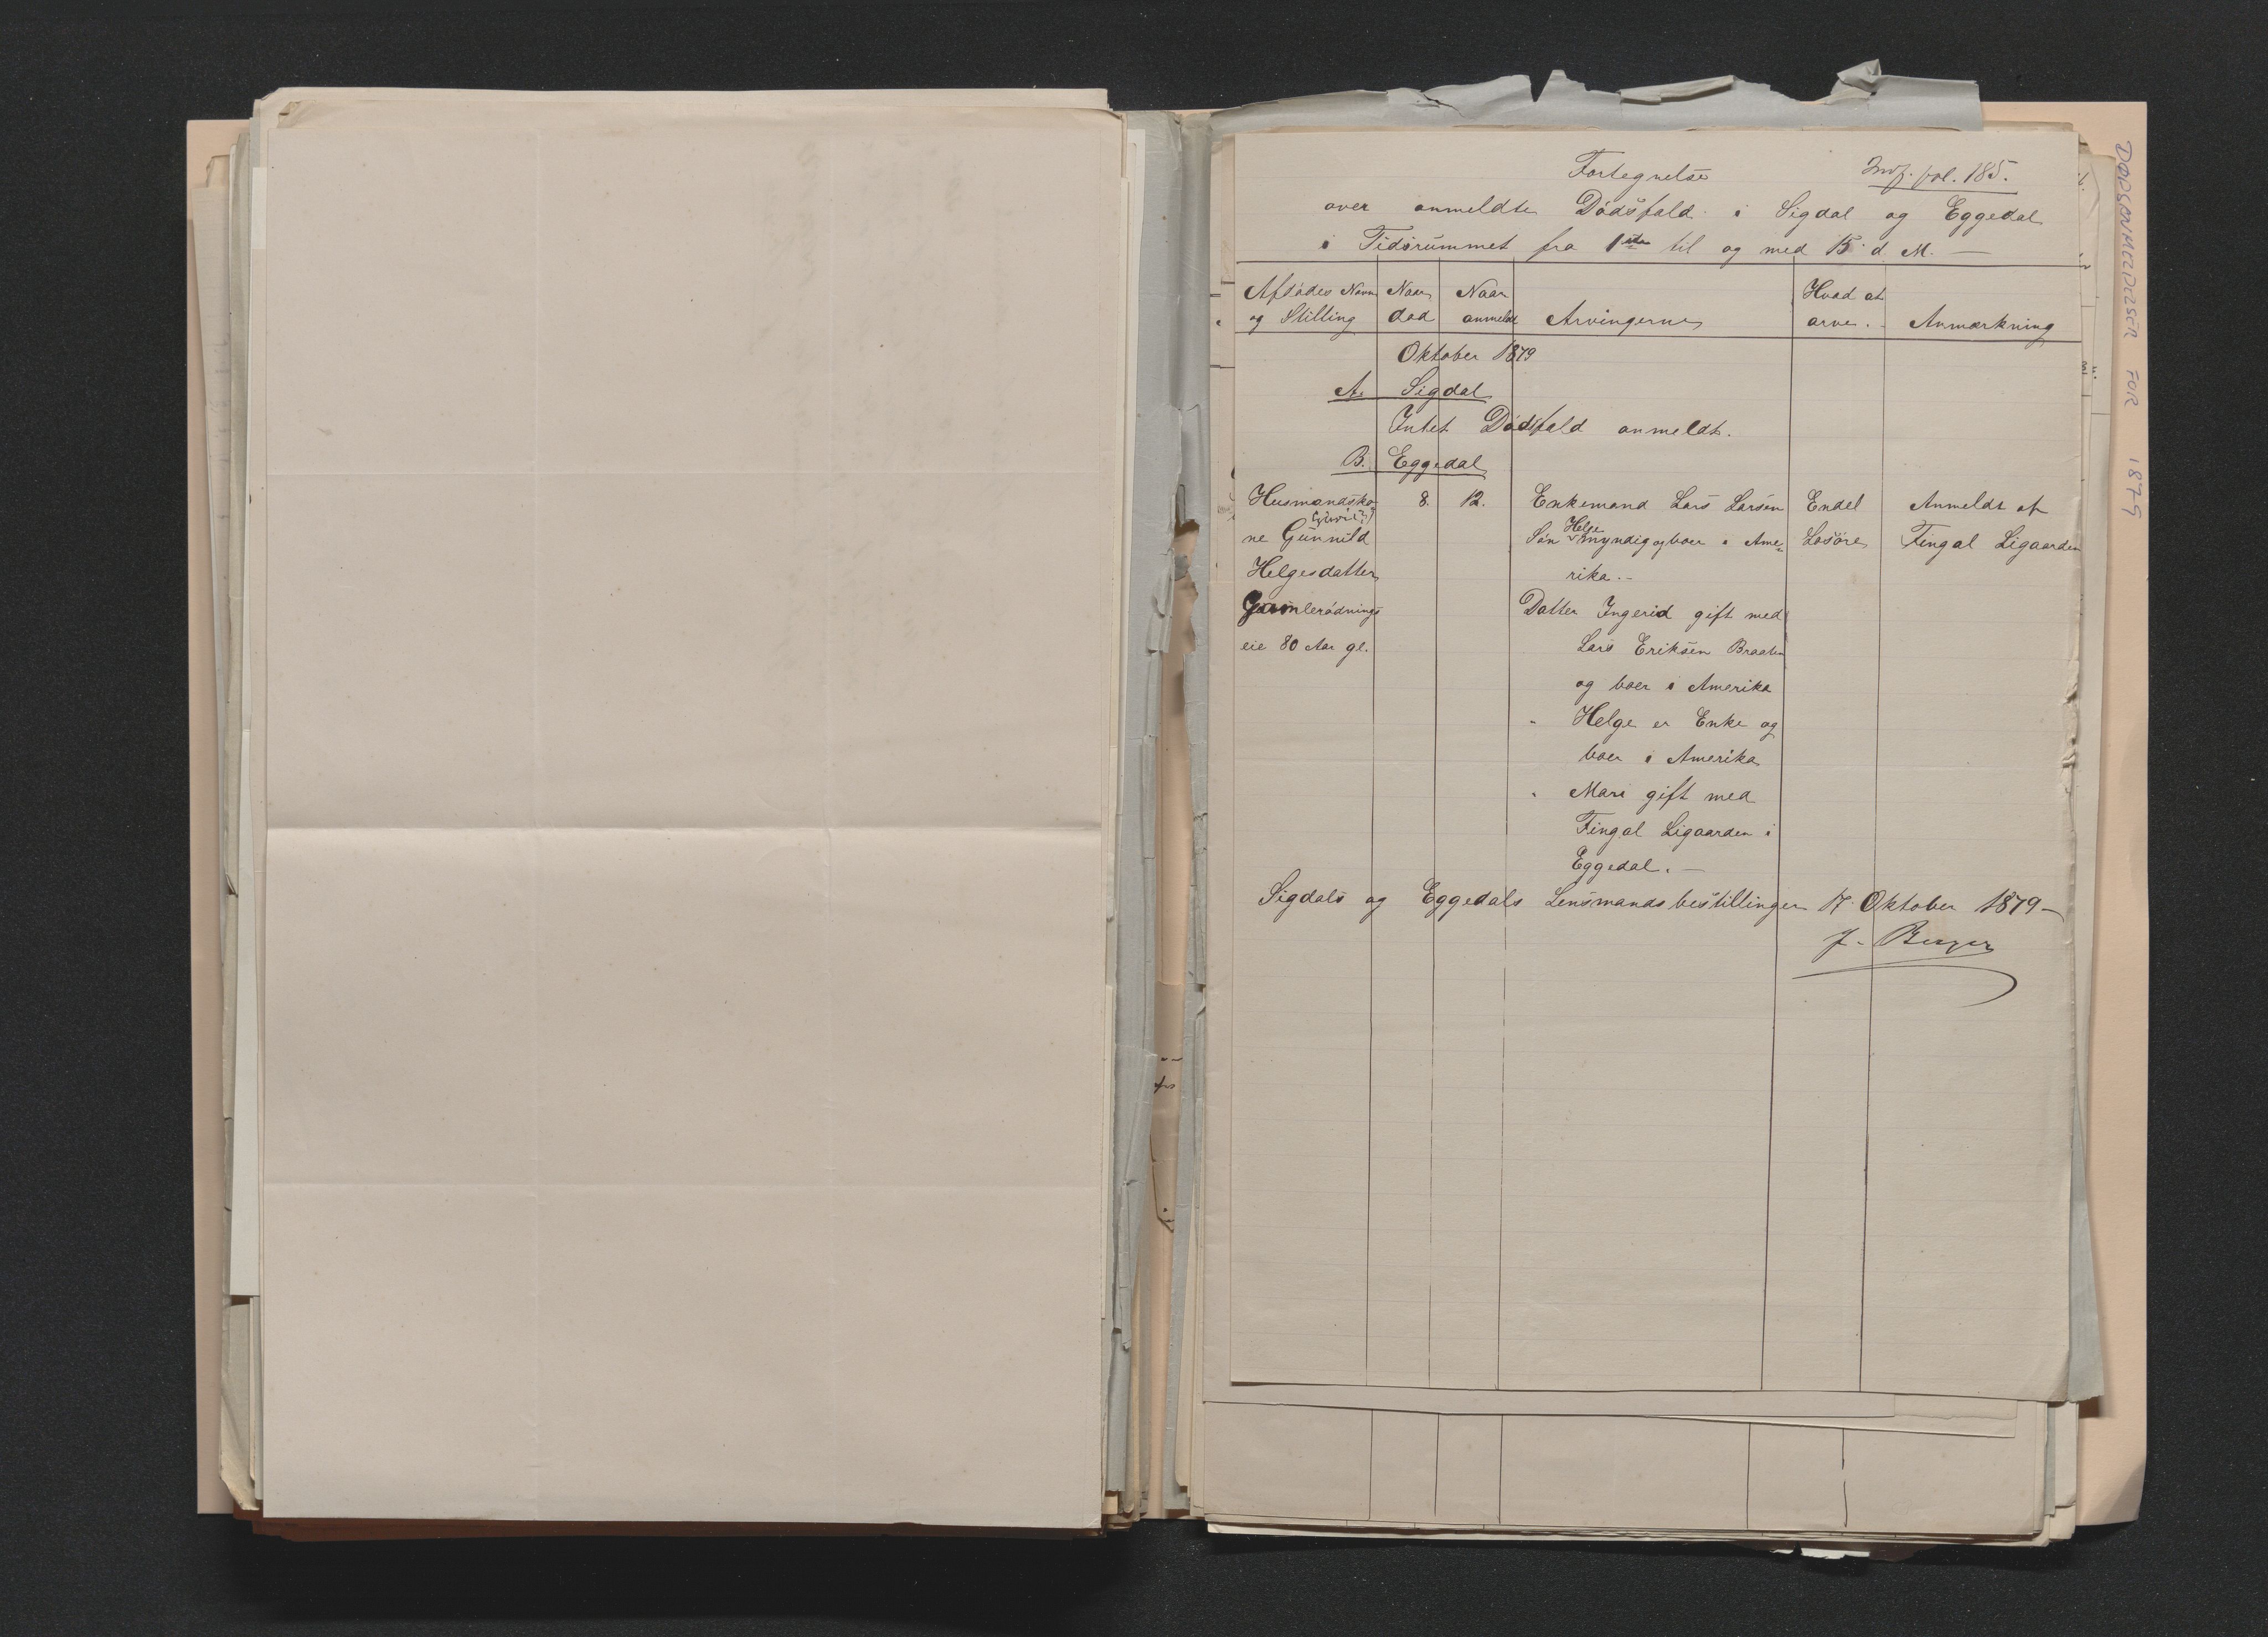 Fortegnelse
Indf. fol. 185.
over anmeldte Dødsfald i Sigdal og Eggedal
i Tidsrummet fra 1ste til og med 15 d. M. —
Afdødes Navn og Stilling
Naar død
Naar anmeldt
Arvingerne
Hvad at arve.
Anmærkning
Oktober 1879
A. Sigdal
Intet Dødsfald anmeldt.
B. Eggedal
Husmandsko-
ne Gunnild
Helgesdatter
Gamlerødnings
eie 80 Aar gl.
8.
12.
Enkemand Lars Larsen
Søn Helge myndig og boer i Ame-
rika. -
Datter Ingerid gift med
Lars Eriksen Braaten
og boer i Amerika
" Helge er Enke og
boer i Amerika
" Mari gift med
Fingal Ligaarden i
Eggedal. —
Endel
Løsøre
Anmeldt af
Fingal Ligaarden
Sigdals og Eggedals Lensmandsbestillinger 17. Oktober 1879 —
DØDSANMELDELSER FOR 1879